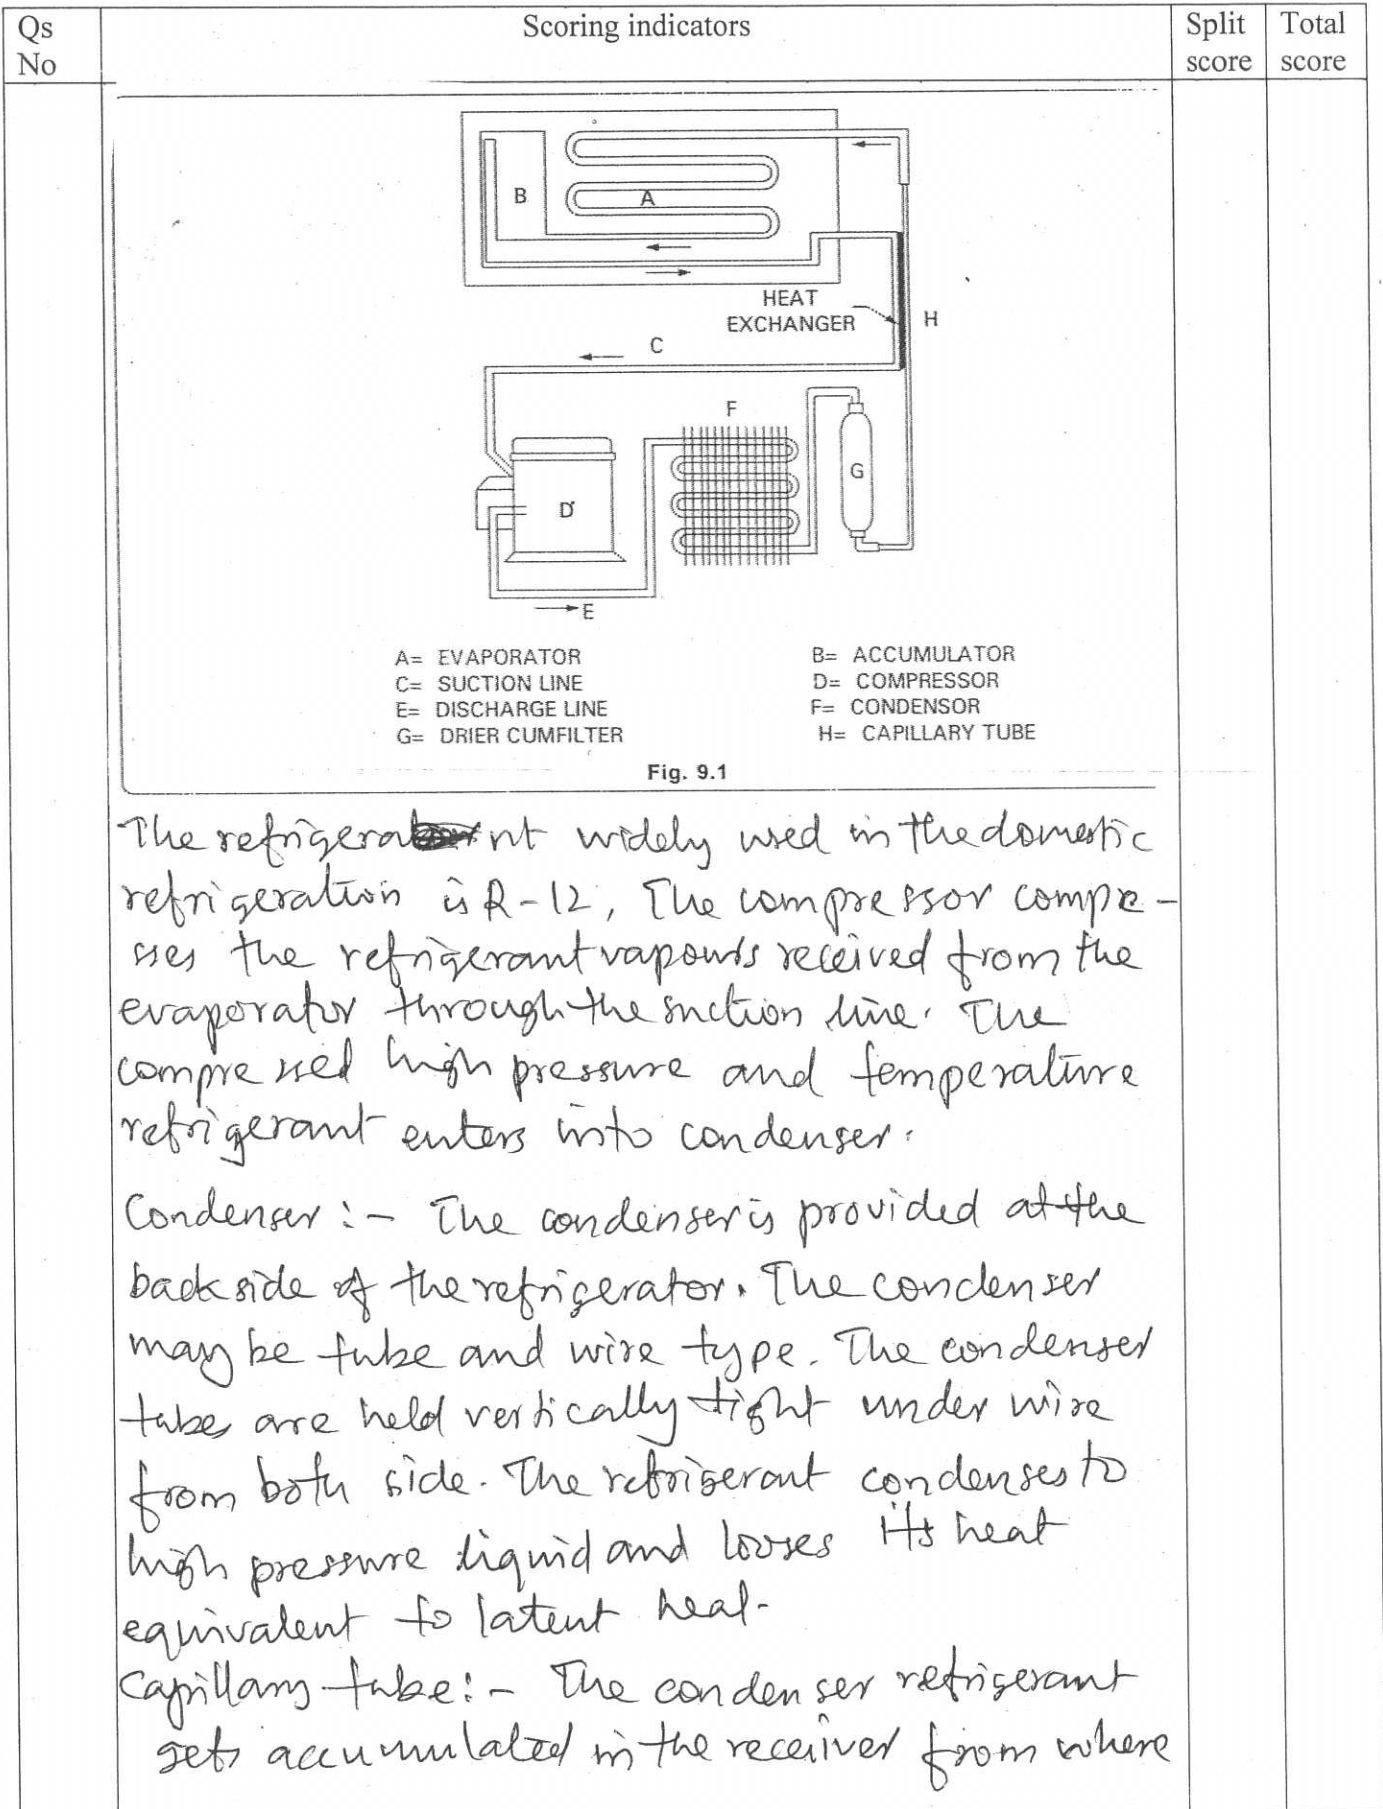 Qs No
Scoring indicators
Split score
Total score
B
A
HEAT
EXCHANGER
H
C
F
G
D
E
A= EVAPORATOR
B= ACCUMULATOR
C= SUCTION LINE
D= COMPRESSOR
E= DISCHARGE LINE
F= CONDENSOR
G= DRIER CUMFILTER
H= CAPILLARY TUBE
Fig. 9.1
The refrigerant widely used in the domestic
refrigeration is R-12, The compressor compre-
sses the refrigerant vapours received from the
evaporator through the suction line. The
compressed high pressure and temperature
refrigerant enters into condenser.
Condenser :- The condenser is provided at the
back side of the refrigerator. The condenser
may be tube and wire type. The condenser
tubes are held vertically tight under wire
from both side. The refrigerant condenses to
high pressure liquid and looses its heat
equivalent to latent heat.
Capillary tube:- The condenser refrigerant
gets accumulated in the receiiver from where